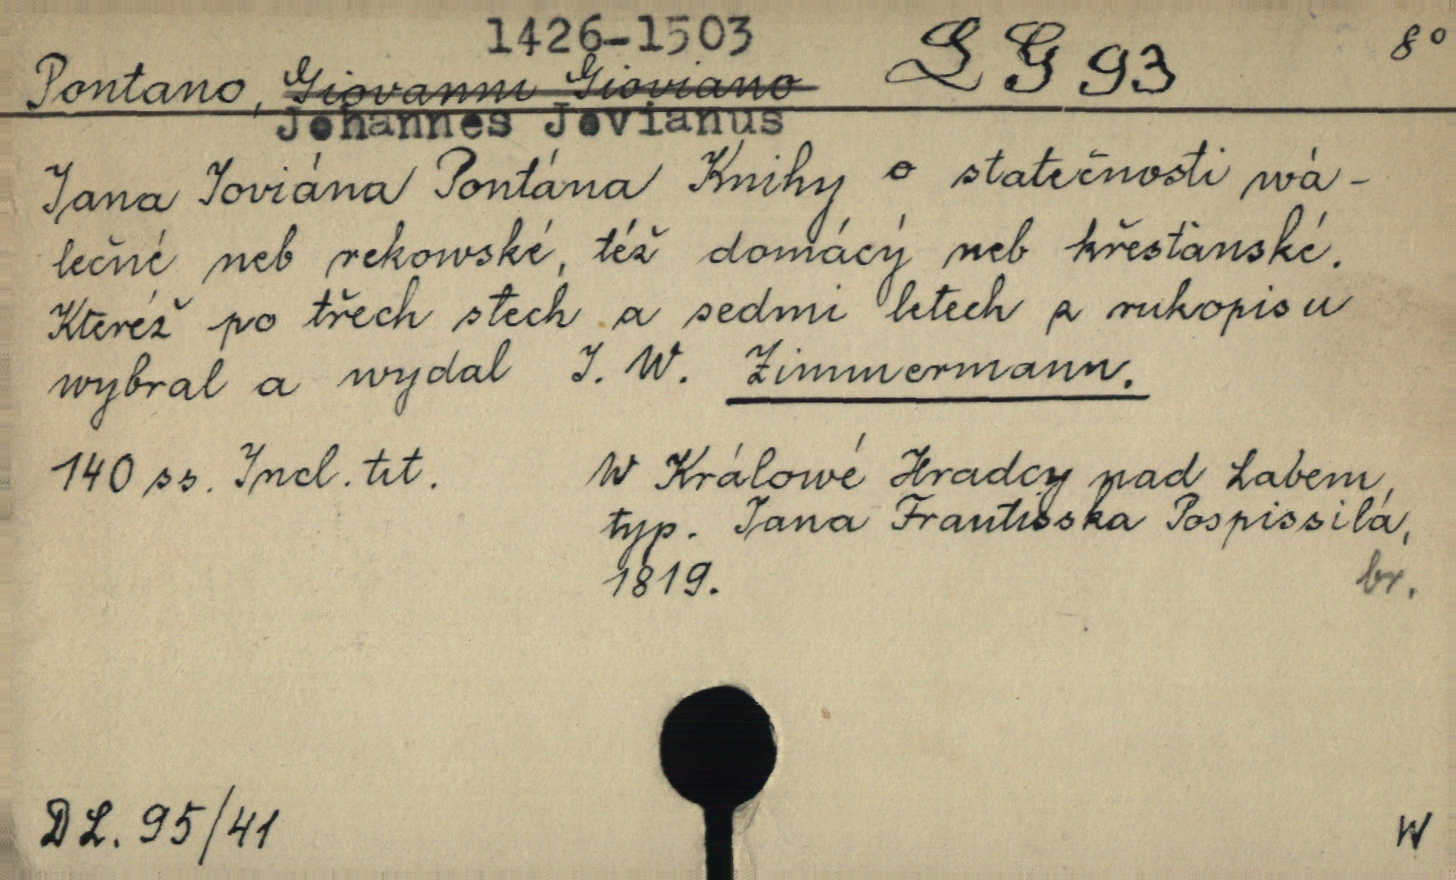 1426-1503
Pontano, Giovanni Gioviano LG 93 8°
Johannes Jovianus
Jana Joviána Pontána Knihy o statečnosti wá-
lečné neb rekowské, též domácý neb křesťanské.
Kteréž po třech stech a sedmi letech z rukopisu
wybral a wydal J. W. Zimmermann.
140 ss. Incl. tit. W Králowé Hradcy nad Labem,
typ. Jana Frantisska Pospissilá,
1819. br.
DL. 95/41 W